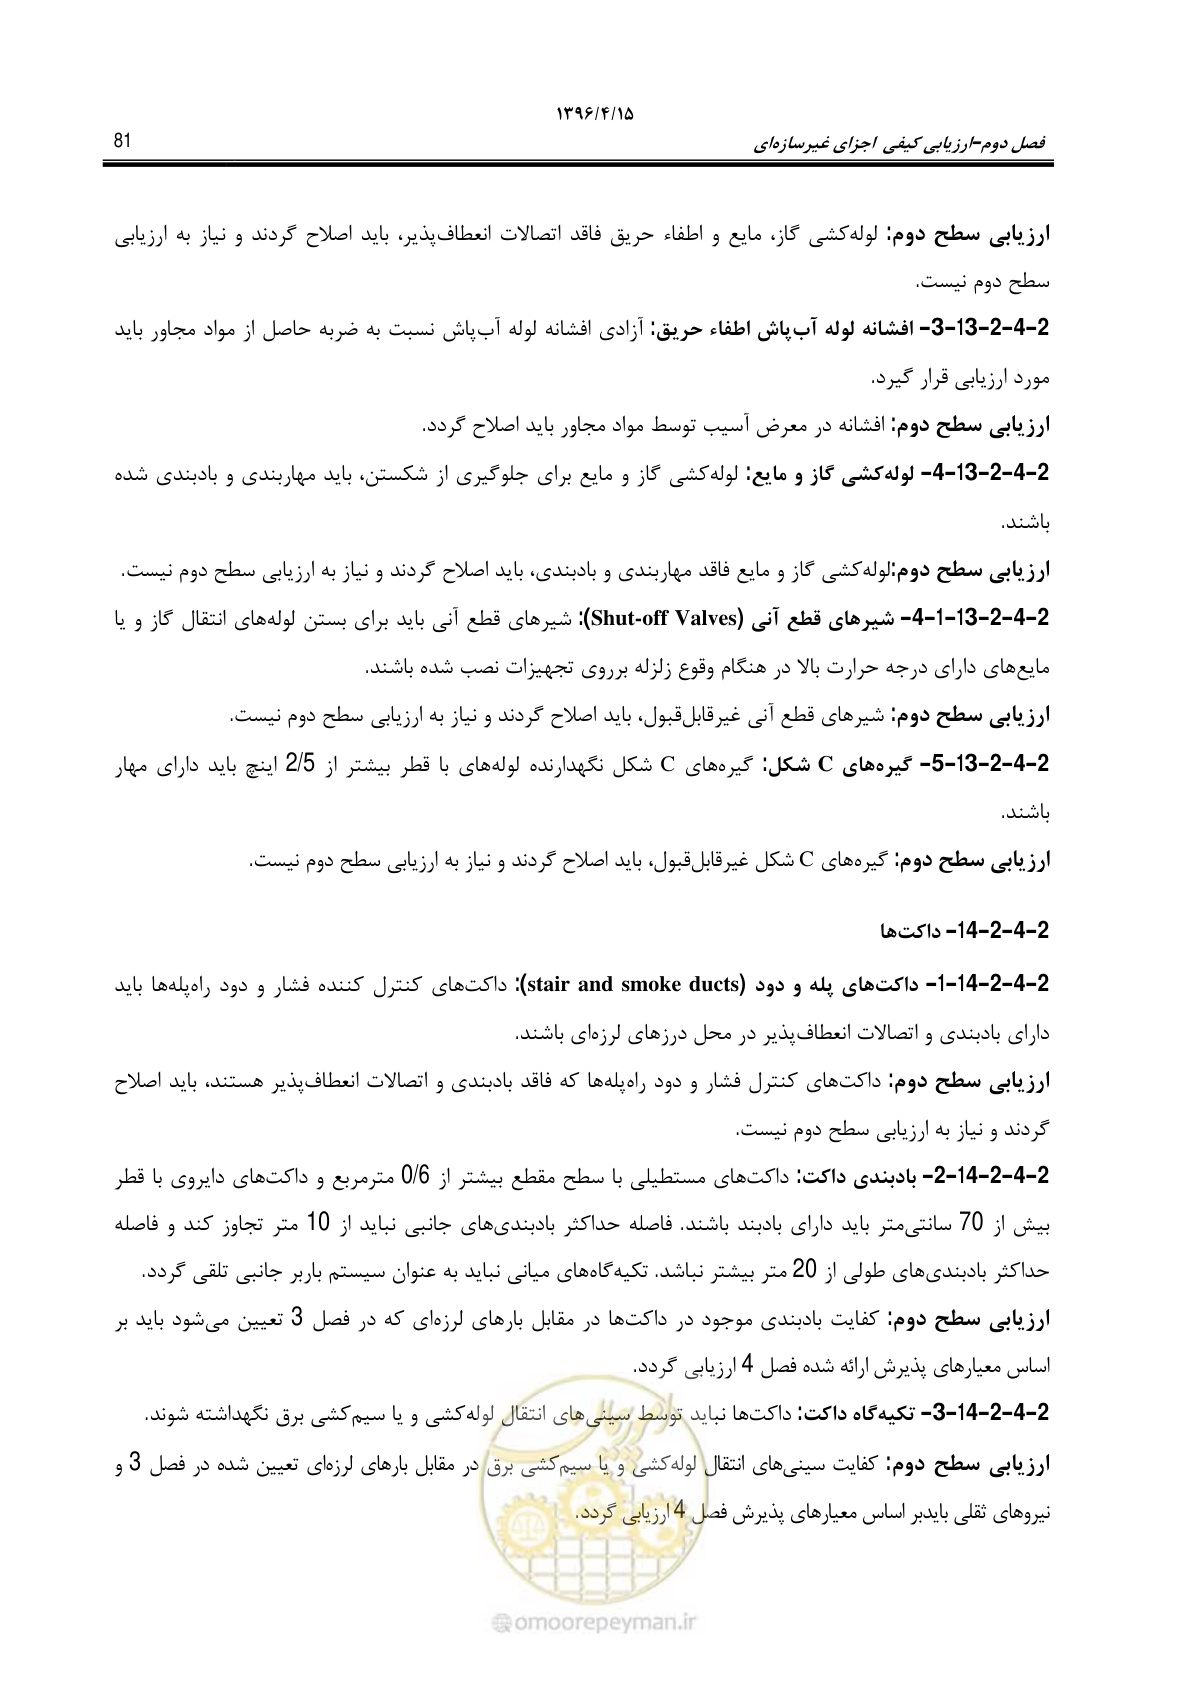 ۱۳۹۶/۴/۱۵
فصل دوم-ارزیابی کیفی اجزای غیرسازه‌ای 81
ارزیابی سطح دوم: لوله‌کشی گاز، مایع و اطفاء حریق فاقد اتصالات انعطاف‌پذیر، باید اصلاح گردند و نیاز به ارزیابی
سطح دوم نیست.
2-4-2-13-3- افشانه لوله آب‌پاش اطفاء حریق: آزادی افشانه لوله آب‌پاش نسبت به ضربه حاصل از مواد مجاور باید
مورد ارزیابی قرار گیرد.
ارزیابی سطح دوم: افشانه در معرض آسیب توسط مواد مجاور باید اصلاح گردد.
2-4-2-13-4- لوله‌کشی گاز و مایع: لوله‌کشی گاز و مایع برای جلوگیری از شکستن، باید مهاربندی و بادبندی شده
باشند.
ارزیابی سطح دوم:لوله‌کشی گاز و مایع فاقد مهاربندی و بادبندی، باید اصلاح گردند و نیاز به ارزیابی سطح دوم نیست.
2-4-2-13-1-4- شیرهای قطع آنی (Shut-off Valves): شیرهای قطع آنی باید برای بستن لوله‌های انتقال گاز و یا
مایع‌های دارای درجه حرارت بالا در هنگام وقوع زلزله برروی تجهیزات نصب شده باشند.
ارزیابی سطح دوم: شیرهای قطع آنی غیرقابل‌قبول، باید اصلاح گردند و نیاز به ارزیابی سطح دوم نیست.
2-4-2-13-5- گیره‌های C شکل: گیره‌های C شکل نگهدارنده لوله‌های با قطر بیشتر از 2/5 اینچ باید دارای مهار
باشند.
ارزیابی سطح دوم: گیره‌های C شکل غیرقابل‌قبول، باید اصلاح گردند و نیاز به ارزیابی سطح دوم نیست.
2-4-2-14- داکت‌ها
2-4-2-14-1- داکت‌های پله و دود (stair and smoke ducts): داکت‌های کنترل کننده فشار و دود راه‌پله‌ها باید
دارای بادبندی و اتصالات انعطاف‌پذیر در محل درزهای لرزه‌ای باشند.
ارزیابی سطح دوم: داکت‌های کنترل فشار و دود راه‌پله‌ها که فاقد بادبندی و اتصالات انعطاف‌پذیر هستند، باید اصلاح
گردند و نیاز به ارزیابی سطح دوم نیست.
2-4-2-14-2- بادبندی داکت: داکت‌های مستطیلی با سطح مقطع بیشتر از 0/6 مترمربع و داکت‌های دایروی با قطر
بیش از 70 سانتی‌متر باید دارای بادبند باشند. فاصله حداکثر بادبندی‌های جانبی نباید از 10 متر تجاوز کند و فاصله
حداکثر بادبندی‌های طولی از 20 متر بیشتر نباشد. تکیه‌گاه‌های میانی نباید به عنوان سیستم باربر جانبی تلقی گردد.
ارزیابی سطح دوم: کفایت بادبندی موجود در داکت‌ها در مقابل بارهای لرزه‌ای که در فصل 3 تعیین می‌شود باید بر
اساس معیارهای پذیرش ارائه شده فصل 4 ارزیابی گردد.
2-4-2-14-3- تکیه‌گاه داکت: داکت‌ها نباید توسط سینی‌های انتقال لوله‌کشی و یا سیم‌کشی برق نگهداشته شوند.
ارزیابی سطح دوم: کفایت سینی‌های انتقال لوله‌کشی و یا سیم‌کشی برق در مقابل بارهای لرزه‌ای تعیین شده در فصل 3 و
نیروهای ثقلی بایدبر اساس معیارهای پذیرش فصل 4 ارزیابی گردد.
امورپیمان
@omoorepeyman.ir